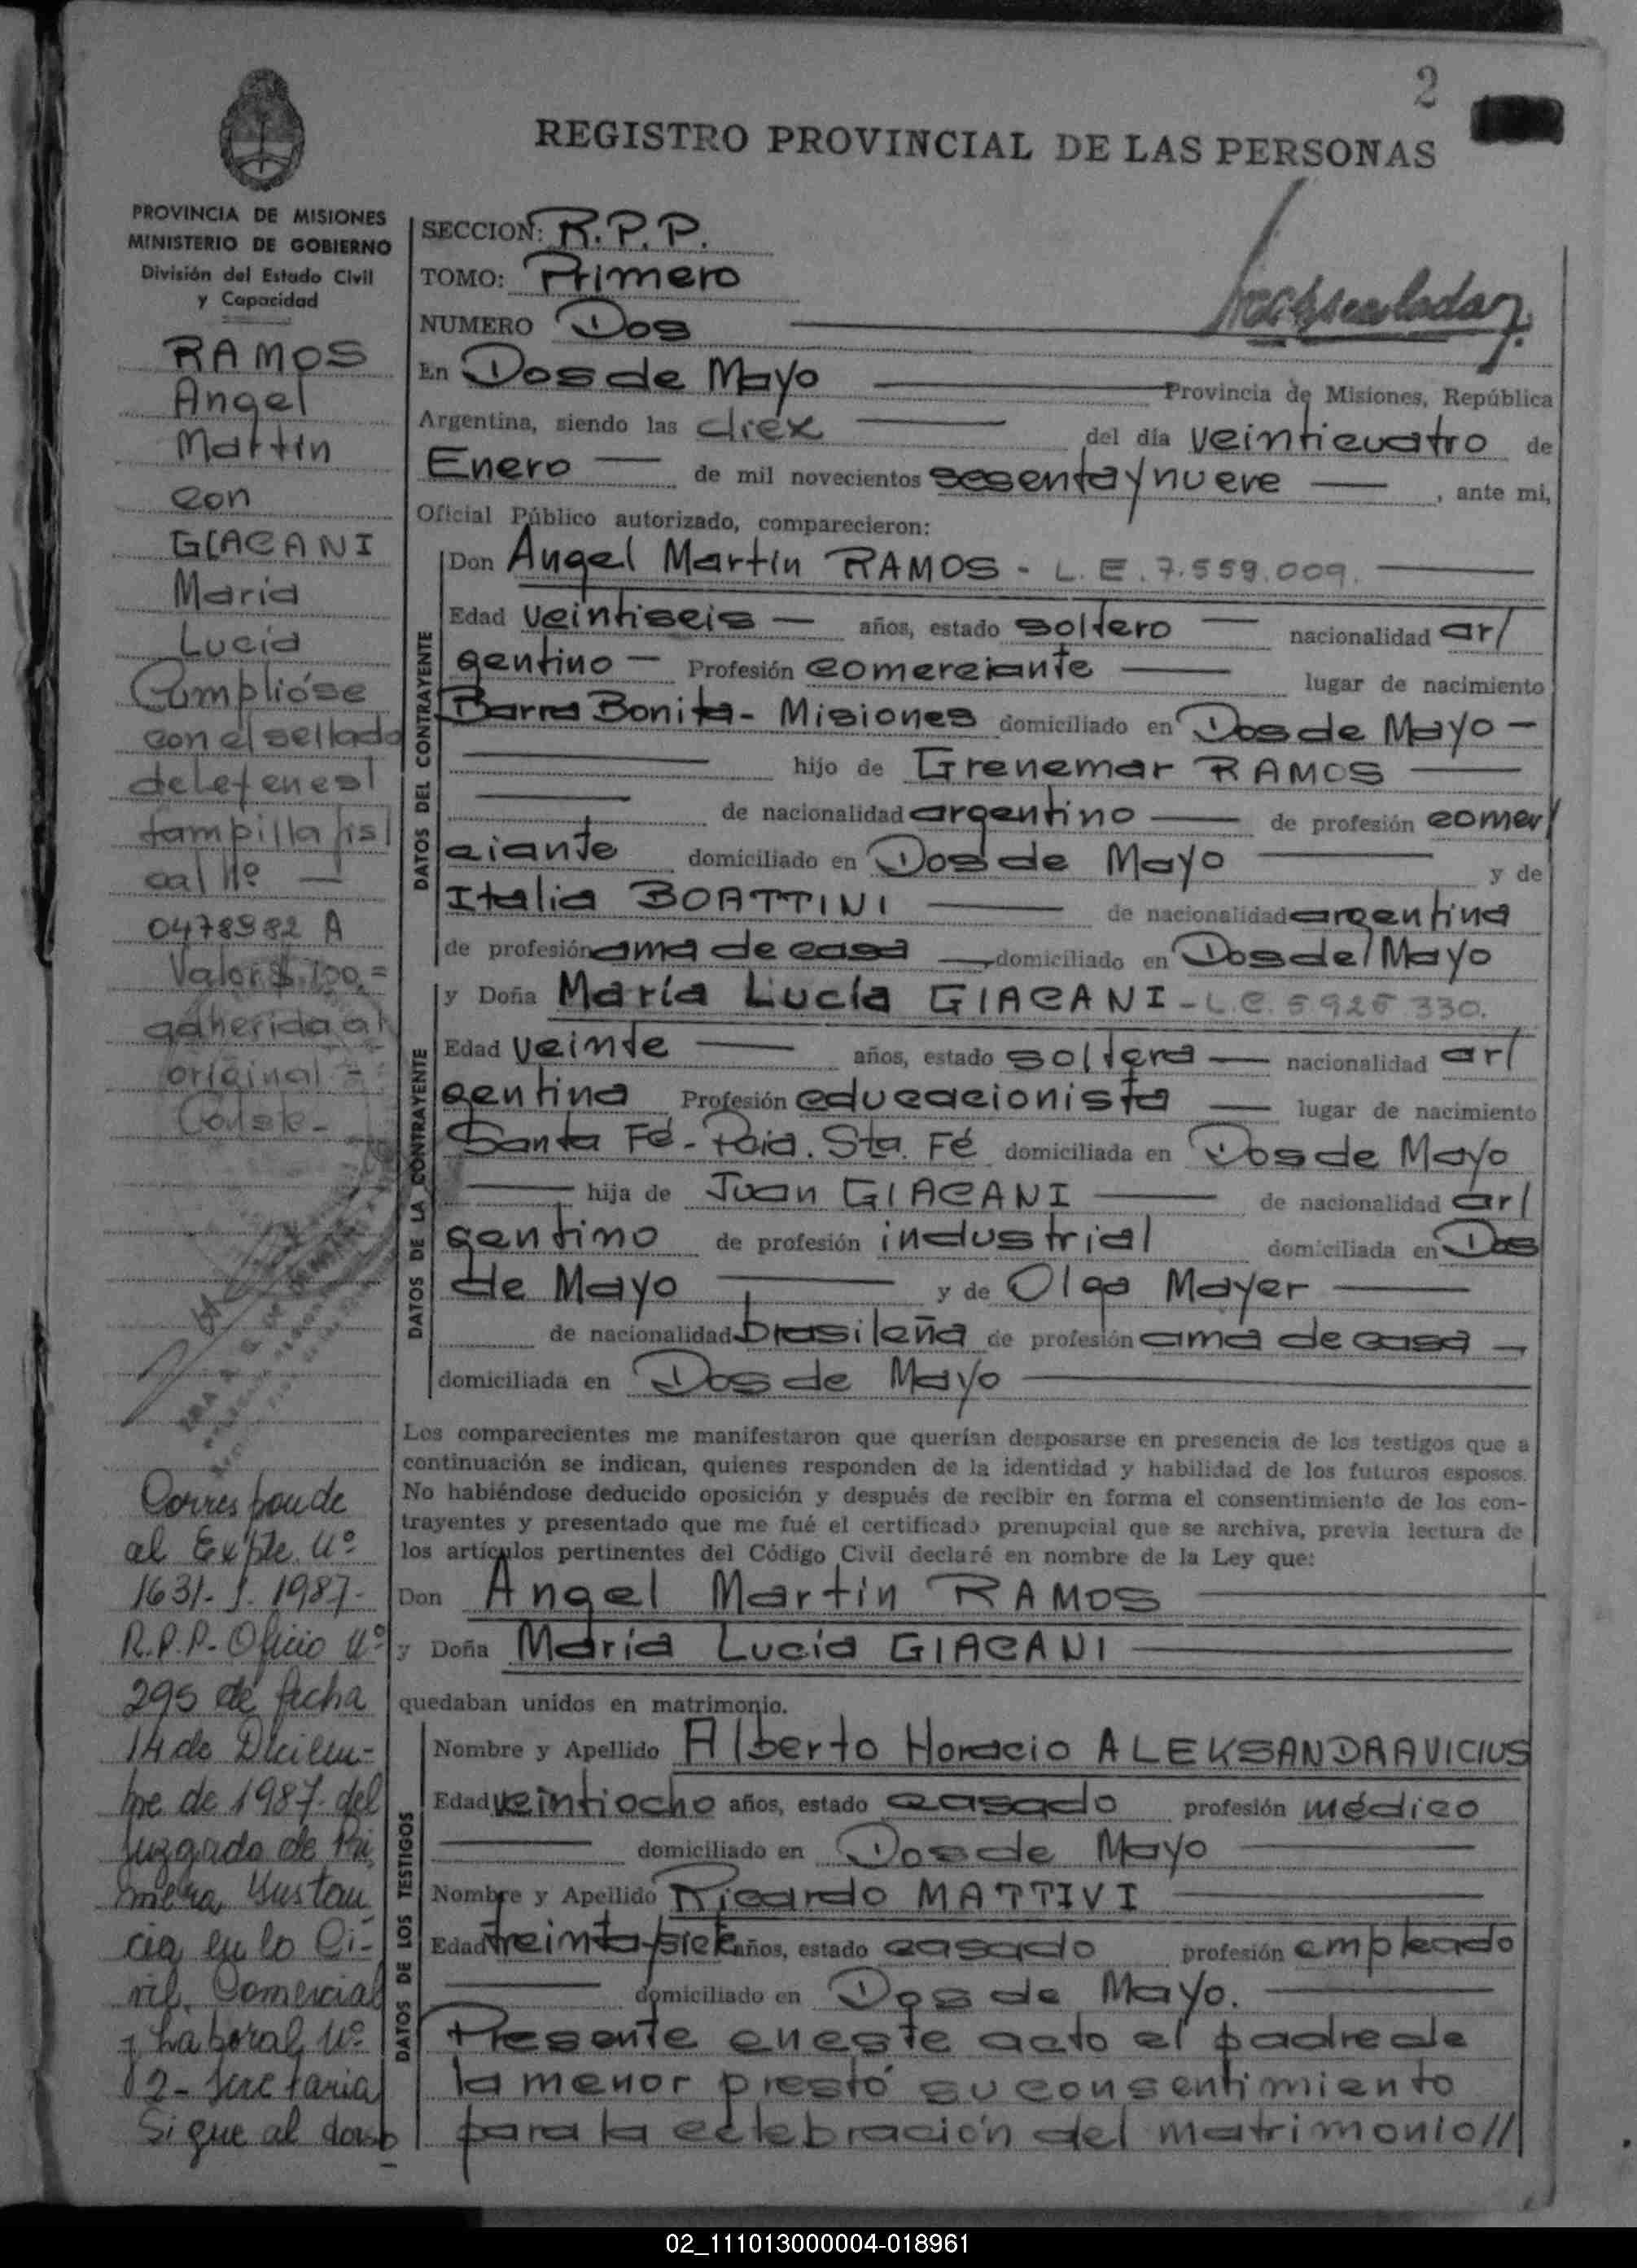 2
REGISTRO PROVINCIAL DE LAS PERSONAS
PROVINCIA DE MISIONES
MINISTERIO DE GOBIERNO
División del Estado Civil
y Capacidad
RAMOS
Angel
Martín
con
GIACANI
María
Lucía
Complióse
con el sellado
de Ley en est
tampilla fis
cal Nº —
0478982 A
Valor $ 100.=
adherida al
original =
Conste-
Corresponde
al Expte. Nº
1631- J. 1987-
R.P.P- Oficio Nº
295 de fecha
14 de Diciem-
bre de 1987- del
Juzgado de Pri
mera Instan
cia en lo Ci-
vil, Comercial
y Laboral Nº
2- Secretaria
Sigue al dorso
SECCION: R.P.P.
TOMO: Primero
NUMERO Dos
En Dos de Mayo Provincia de Misiones, República
Argentina, siendo las diez del día veinticuatro de
Enero — de mil novecientos sesenta y nueve —, ante mi,
Oficial Público autorizado, comparecieron:
DATOS DEL CONTRAYENTE
Don Angel Martín RAMOS - L.E. 7.559.009.
Edad veintiseis — años, estado soltero — nacionalidad ar/
gentino — Profesión comerciante — lugar de nacimiento
Barra Bonita - Misiones domiciliado en Dos de Mayo —
hijo de Grenemar RAMOS
de nacionalidad argentino — de profesión comer/
ciante domiciliado en Dos de Mayo — y de
Italia BOATTINI — de nacionalidad argentina
de profesión ama de casa — domiciliado en Dos de Mayo
DATOS DE LA CONTRAYENTE
y Doña María Lucía GIACANI - L.C. 5925 330.
Edad veinte — años, estado soltera — nacionalidad ar/
gentina Profesión educacionista — lugar de nacimiento
Santa Fé - Pcia. Sta. Fé domiciliada en Dos de Mayo
— hija de Juan GIACANI — de nacionalidad ar/
gentino de profesión industrial domiciliada en Dos
de Mayo — y de Olga Mayer —
de nacionalidad brasileña de profesión ama de casa —
domiciliada en Dos de Mayo —
Los comparecientes me manifestaron que querían desposarse en presencia de los testigos que a
continuación se indican, quienes responden de la identidad y habilidad de los futuros esposos.
No habiéndose deducido oposición y después de recibir en forma el consentimiento de los con-
trayentes y presentado que me fué el certificado prenupcial que se archiva, previa lectura de
los artículos pertinentes del Código Civil declaré en nombre de la Ley que:
Don Angel Martín RAMOS
y Doña María Lucía GIACANI
quedaban unidos en matrimonio.
DATOS DE LOS TESTIGOS
Nombre y Apellido Alberto Horacio ALEKSANDRAVICIUS
Edad veintiocho años, estado casado profesión médico
domiciliado en Dos de Mayo
Nombre y Apellido Ricardo MATTIVI
Edad treinta y siete años, estado casado profesión empleado
domiciliado en Dos de Mayo.
Presente en este acto el padre de
la menor prestó su consentimiento
para la celebración del matrimonio//
02_111013000004-018961